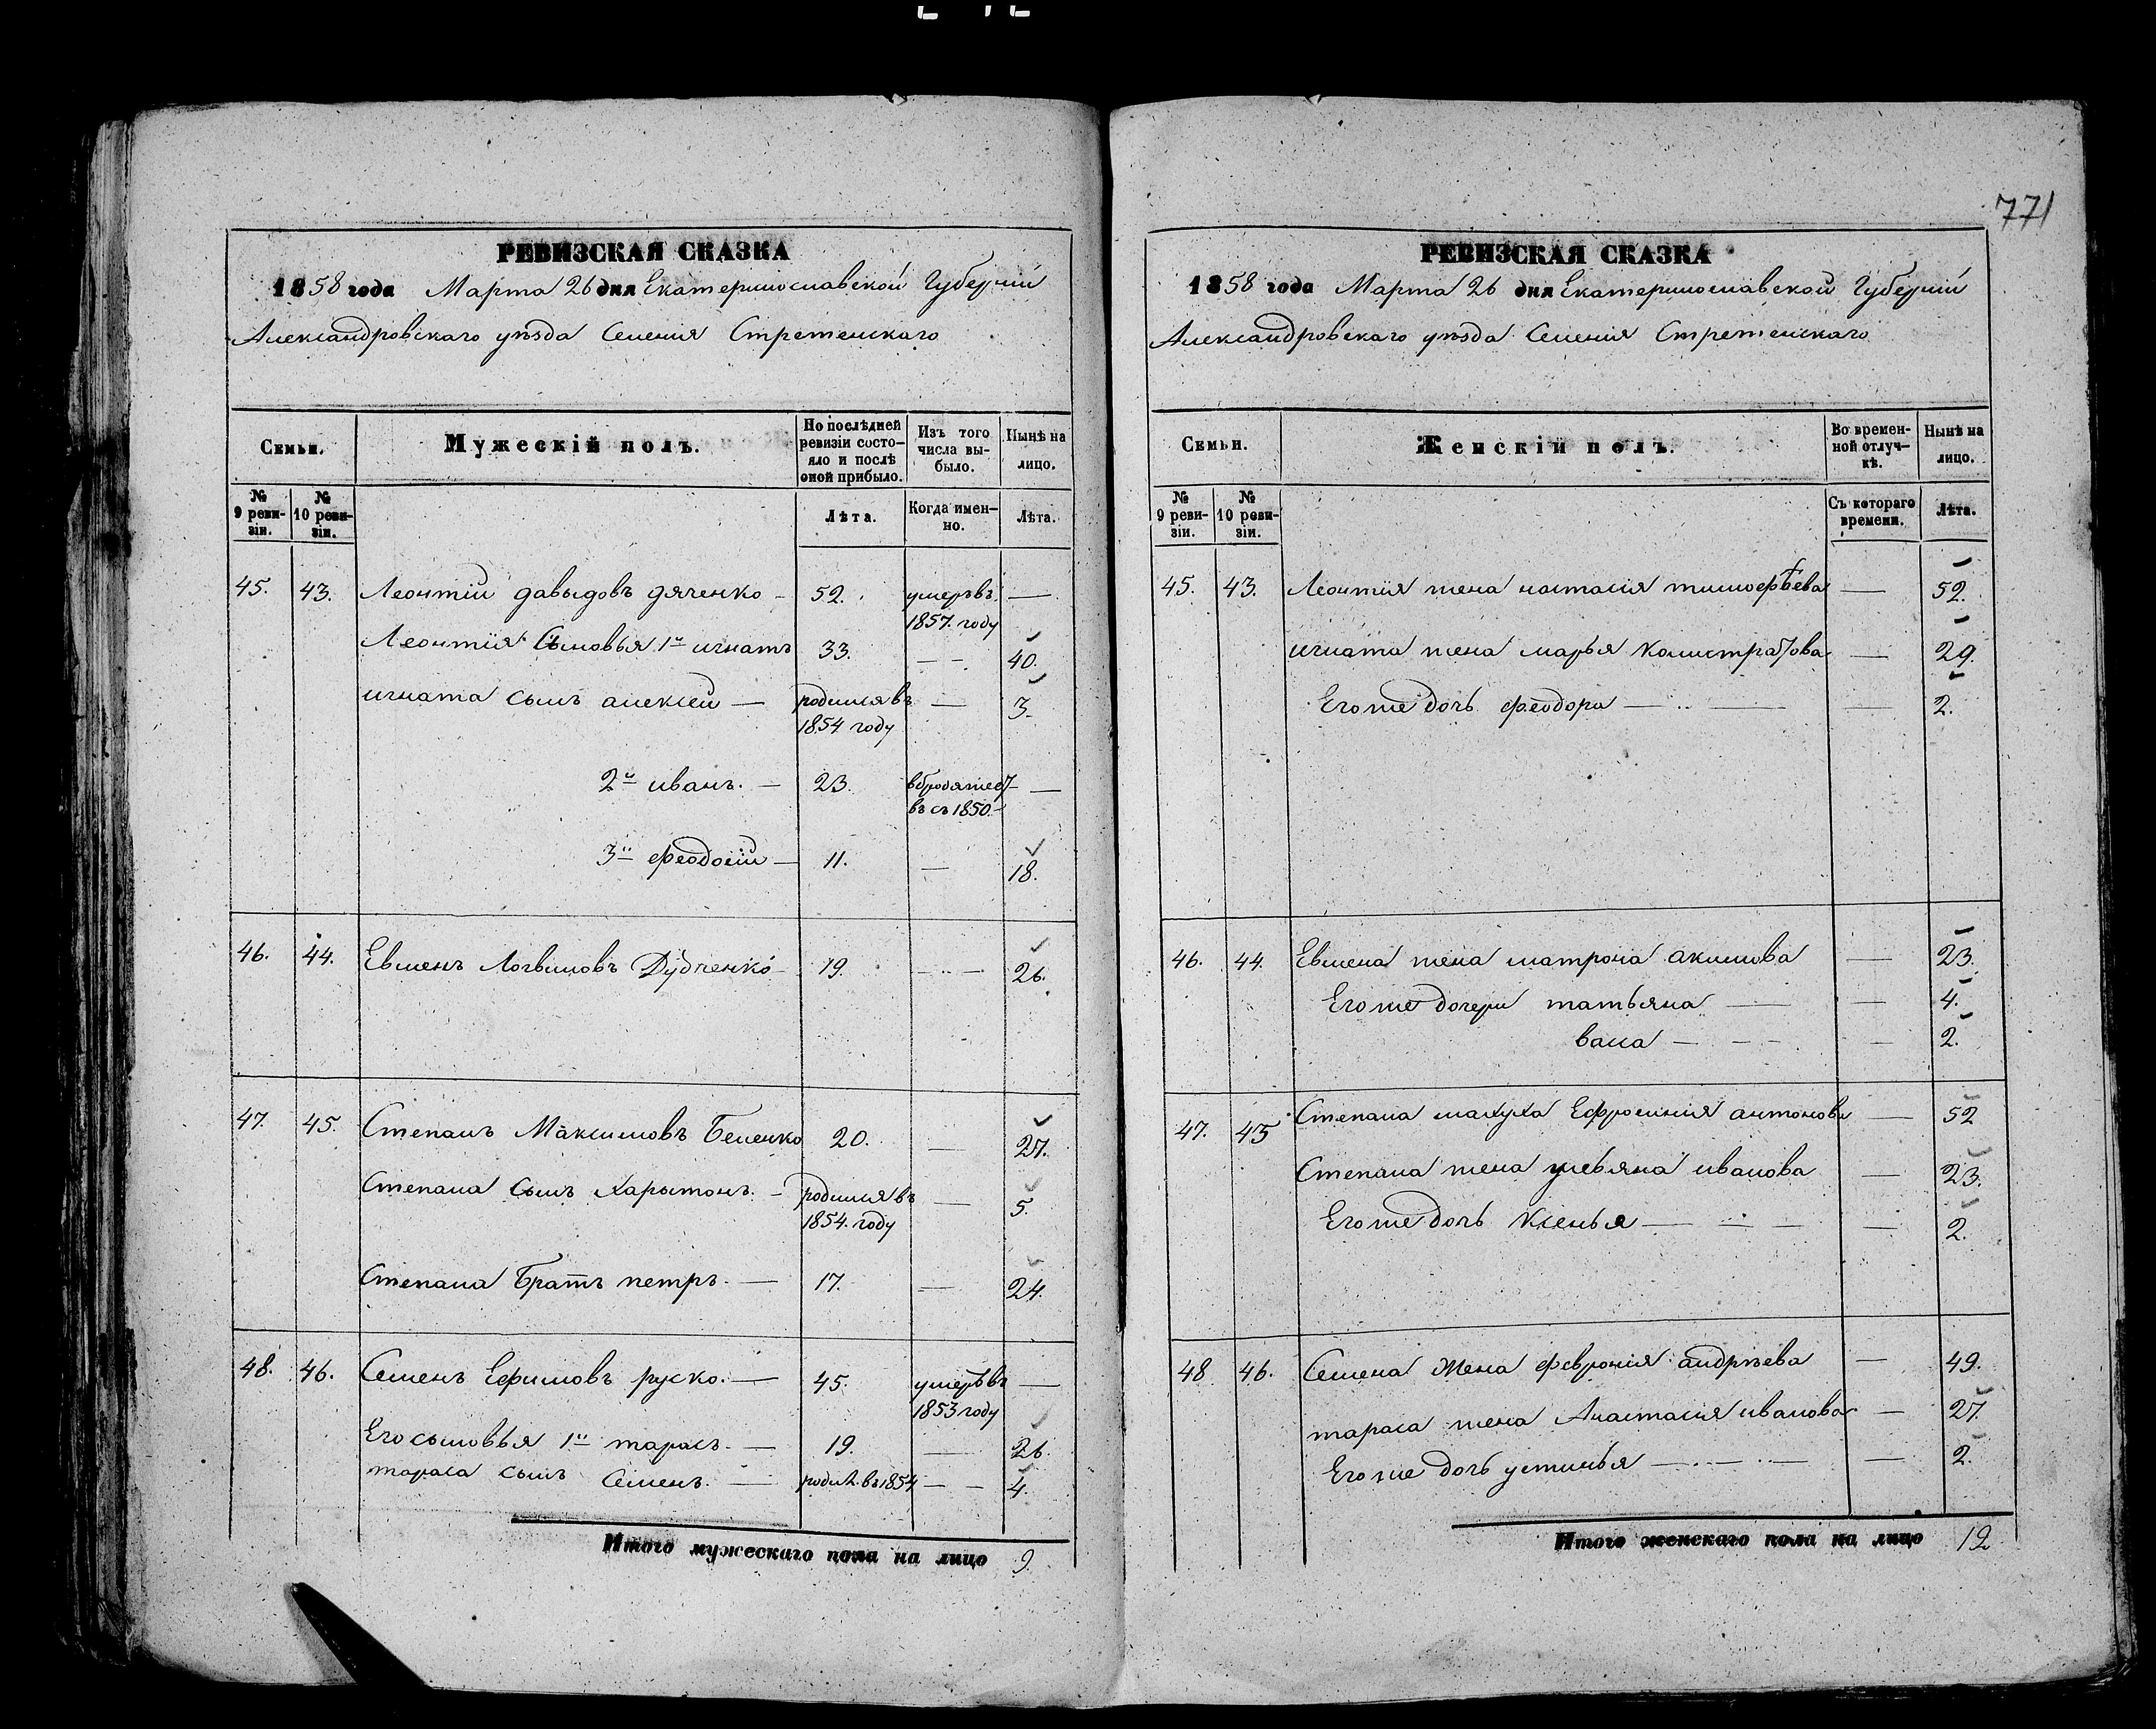 771
РЕВИЗСКАЯ СКАЗКА
1858 года Марта 26 дня Екатеринославской Губерніи
Александровскаго уѣзда Селенія Стретенскаго
Семьи.
Мужескій полъ.
По послѣдней ревизіи состояло и послѣ оной прибыло.
Изъ того числа выбыло.
Нынѣ на лицо.
№ 9 ревизіи.
№ 10 ревизіи.
Лѣта.
Когда именно.
Лѣта.
45. 43. Леонтій давыдовъ дяченко - 52. умеръ въ —
1857. году
Леонтія Сыновья 1й игнатъ 33. — 40.
игната сынъ алексей — родился въ — 3.
1854 году
2й иванъ. — 23. —
въ съ 1850
3й феодосій — 11. — 18.
46. 44. Евменъ Логвиновъ Дудченко - 19. — 26.
47. 45. Степанъ Максимовъ Беленко 20. — 27.
Степана сынъ Харытонъ. - родился въ — 5.
1854. году
Степана Братъ петръ. — 17. — 24.
48. 46. Семенъ Ефимовъ руско. — 45. умеръ въ —
1853 году
Его сыновья 1й тарасъ. — 19. — 26.
тараса сынъ Семенъ. — родил. въ 1854 — 4.
Итого мужескаго пола на лицо 9.
РЕВИЗСКАЯ СКАЗКА
1858 года Марта 26 дня Екатеринославской Губерніи
Александровскаго уѣзда Селенія Стретенскаго
Семьи.
Женскій полъ.
Во временной отлучкѣ.
Нынѣ на лицо.
№ 9 ревизіи.
№ 10 ревизіи.
Съ котораго времени.
Лѣта.
45. 43. Леонтія жена настасія тимофѣева — 52.
игната жена марья калистратова — 29.
Его же дочь феодора — 2.
46. 44. Евмена жена матрона акимова — 23.
Его же дочери татьяна — 4.
васа — 2.
47. 45 Степана мачуха Ефросинія антонова — 52
Степана жена ульяна иванова — 23.
Его же дочь Ксенья — 2.
48 46. Семена Жена февронія андрѣева — 49.
тараса жена Анастасія иванова — 27.
Его же дочь устинья — 2.
Итого женскаго пола на лицо 12